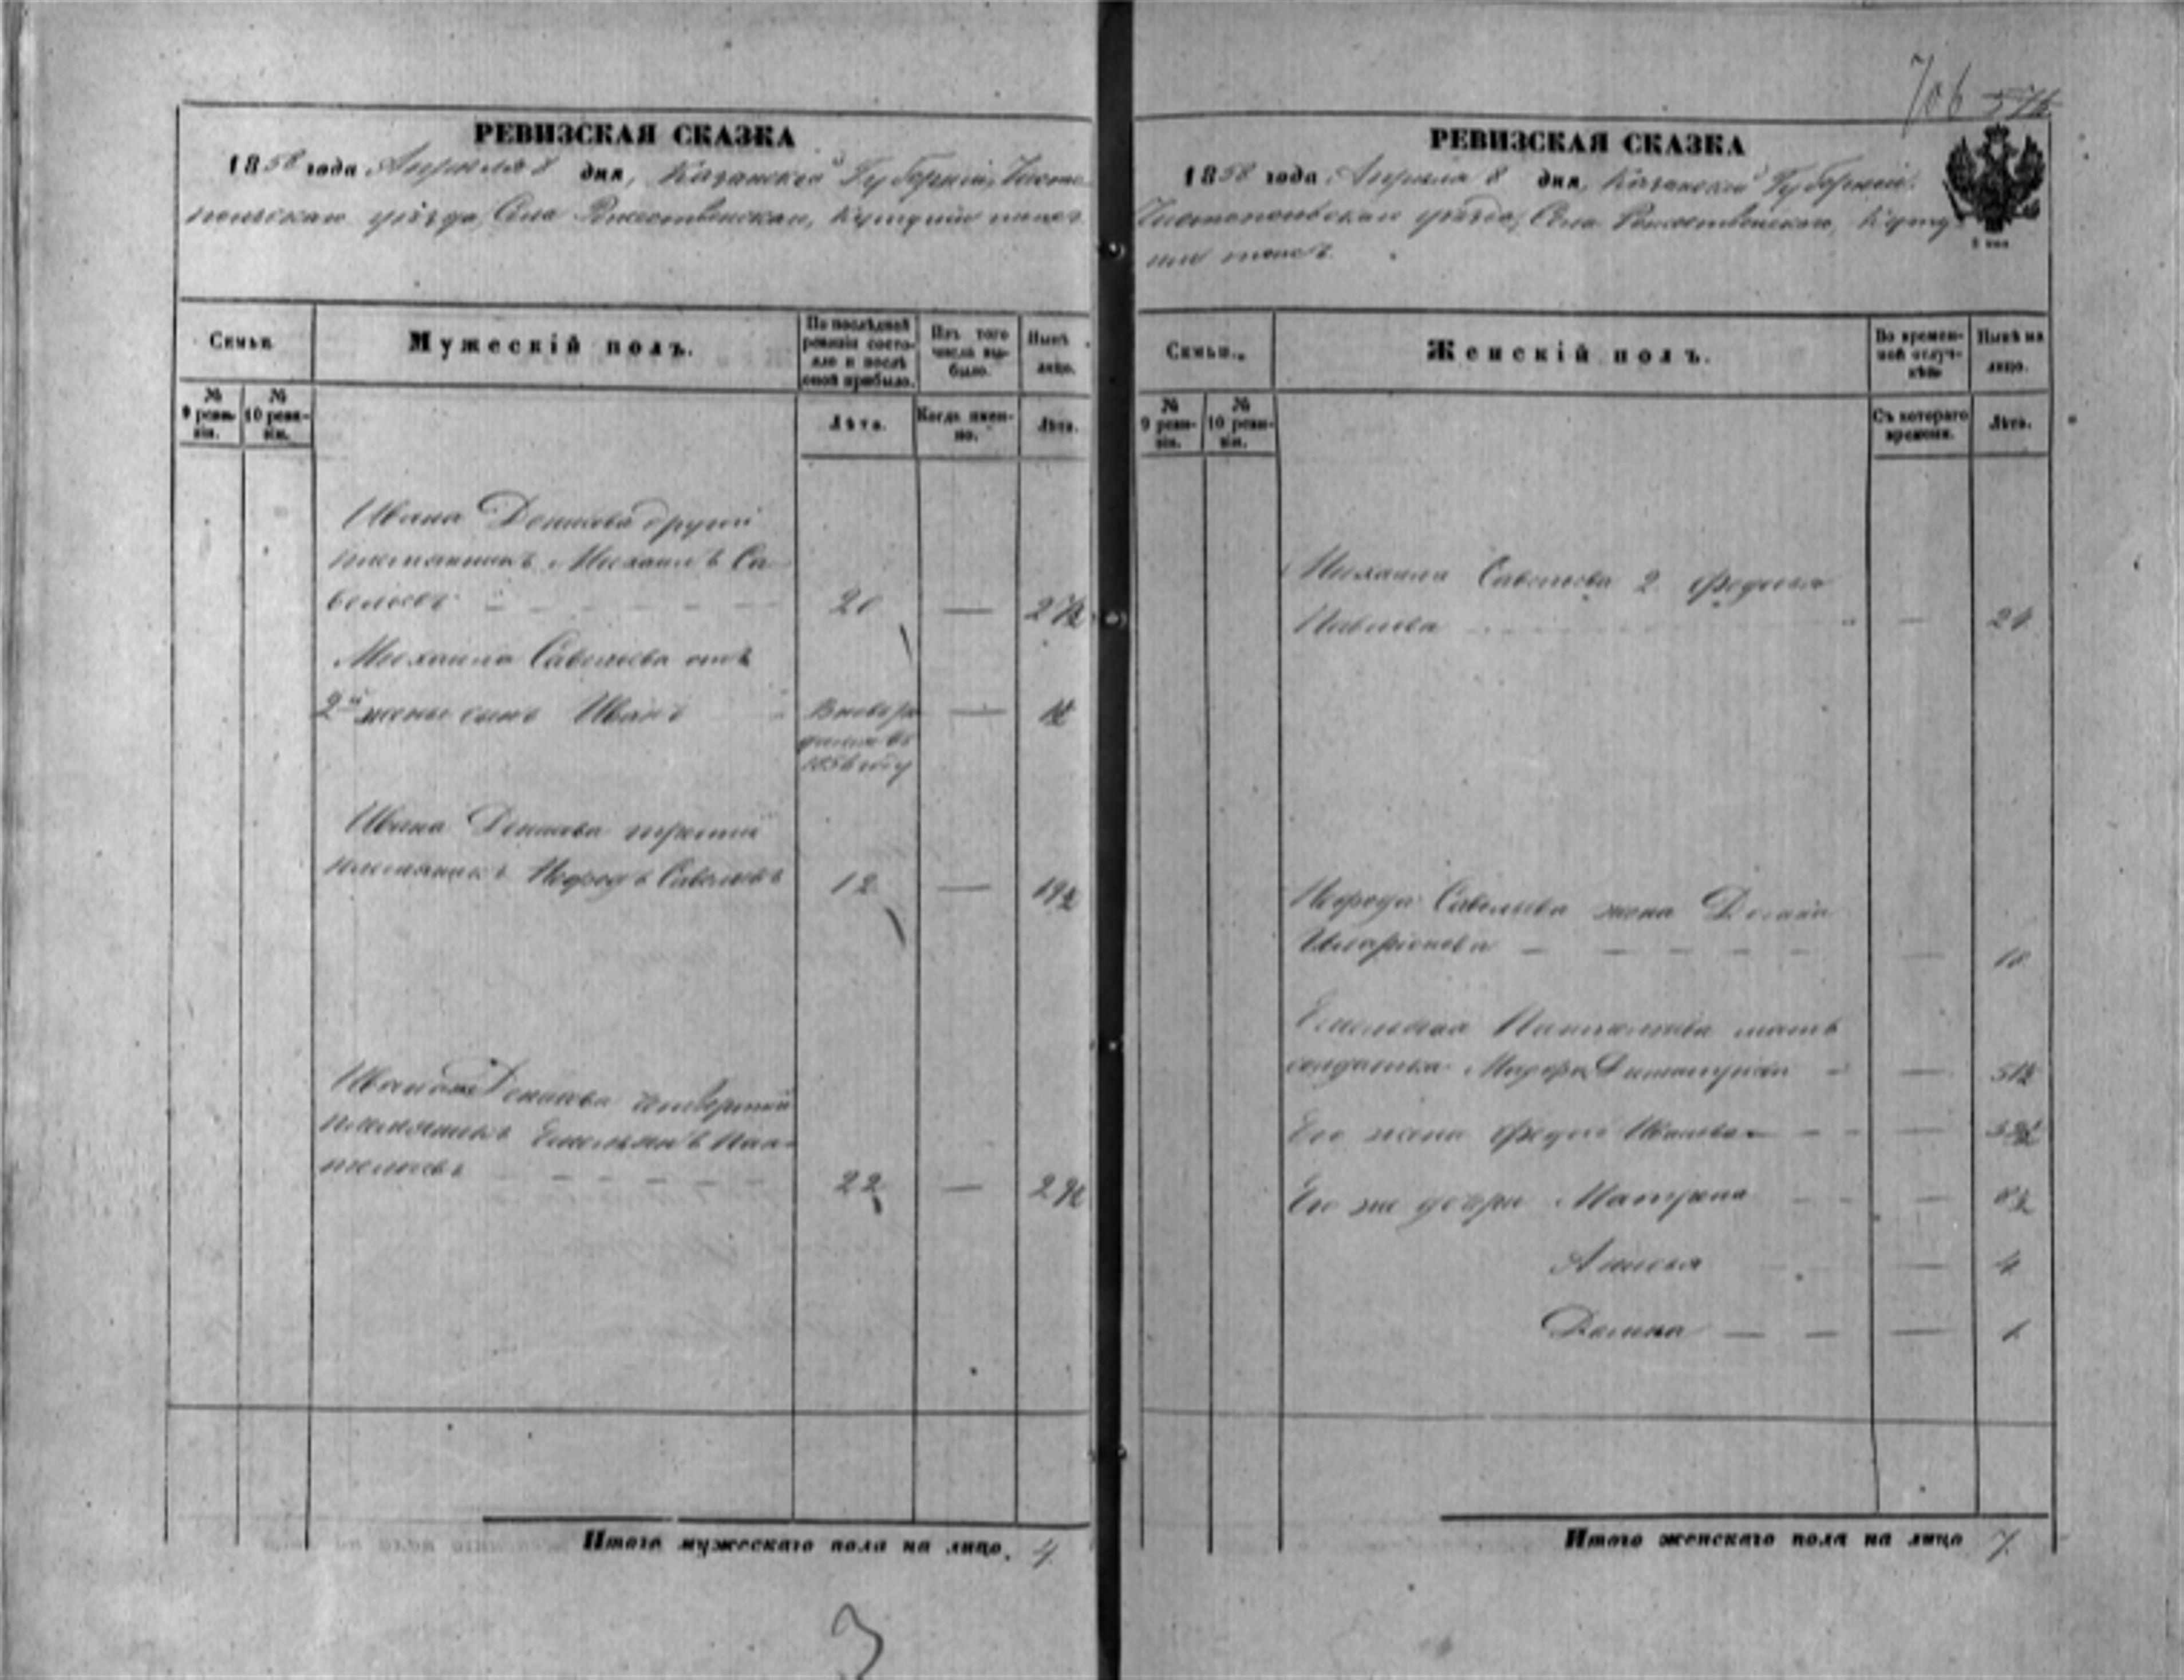 706 576
РЕВИЗСКАЯ СКАЗКА
1858 года Апреля 8 дня, Казанской Губерніи, Чисто-
польскаго уѣзда, Села Рождественскаго, Кутуши тожъ
Семьи.
Мужескій полъ.
По послѣдней
ревизіи состо-
яло и послѣ
оной прибыло.
Изъ того
числа вы-
было.
Нынѣ
лицо.
№
9 реви-
зіи.
№
10 реви-
зіи.
Лѣта.
Когда имен-
но.
Лѣта.
Ивана Денисова другой
племянникъ Михаилъ Са-
вельевъ 20 — 27½
Михаила Савельева отъ
2й жены сынъ Иванъ Вновь ро — 1½
дился въ
1856 году
Ивана Денисова третій
племянникъ Нефедъ Савельевъ 12 — 19½
Ивана Денисова четвертый
племянникъ Емельянъ Пан-
телеевъ 22 — 29½
Итого мужескаго пола на лицо. 4
3
РЕВИЗСКАЯ СКАЗКА
1858 года Апреля 8 дня, Казанской Губерніи,
Чистопольскаго уѣзда, Села Рождественскаго, Куту-
ши тожъ
Семьи.
Женскій полъ.
Во времен-
ной отлуч-
кѣ
Нынѣ на
лицо.
№
9 реви-
зіи.
№
10 реви-
зіи.
Съ котораго
времени.
Лѣта.
Михаила Савельева 2 Федосья
Павлова —
Нефеда Савельева жена
Иларіонова —
Емельяна Пантелеева мать
солдатка —
Его жена Иванова —
Его же дочери Матрена — 8½
Анисья — 4
Домна — 1
Итого женскаго пола на лицо 7.